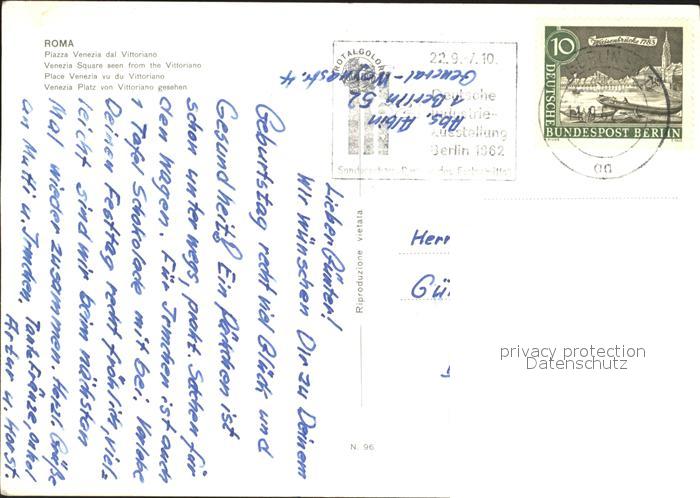 ROMA
Piazza Venezia dal Vittoriano
Venezia Square seen from the Vittoriano
Place Venezia vu du Vittoriano
Venezia Platz von Vittoriano gesehen
22.9.-7.10.
Deutsche
Industrie-
Ausstellung
Berlin 1962
10
DEUTSCHE
BUNDESPOST BERLIN
Abs. Albin
1 Berlin 52
General-
Lieber Günter!
Wir wünschen Dir zu Deinem
Geburtstag recht viel Glück und
Gesundheit! Ein Päckchen ist
schon unterwegs, prakt. Sachen für
den Wagen. Für Irmchen ist auch
1 Tafel Schokolade mit bei. Verlebe
Deinen Festtag recht fröhlich, viel-
leicht sind wir beim nächsten
Mal wieder zusammen. Herzl. Grüße
an Mutti u. Irmchen, Tante Fränze, Onkel
Artur u. Horst.
Riproduzione vietata
N. 96
Herr
Gü
privacy protection
Datenschutz